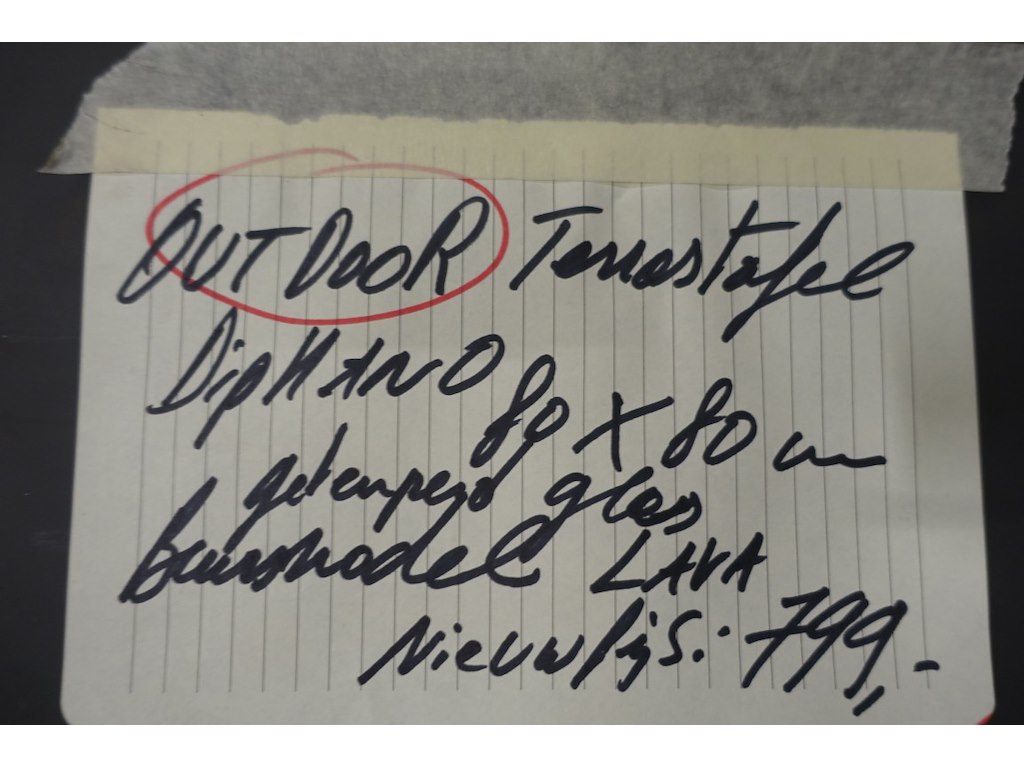 OUTDOOR Terrastafel
DipHANO 80 X 80 cm
getemperd glas
Beursmodel LAVA
Nieuwprijs: 799,-